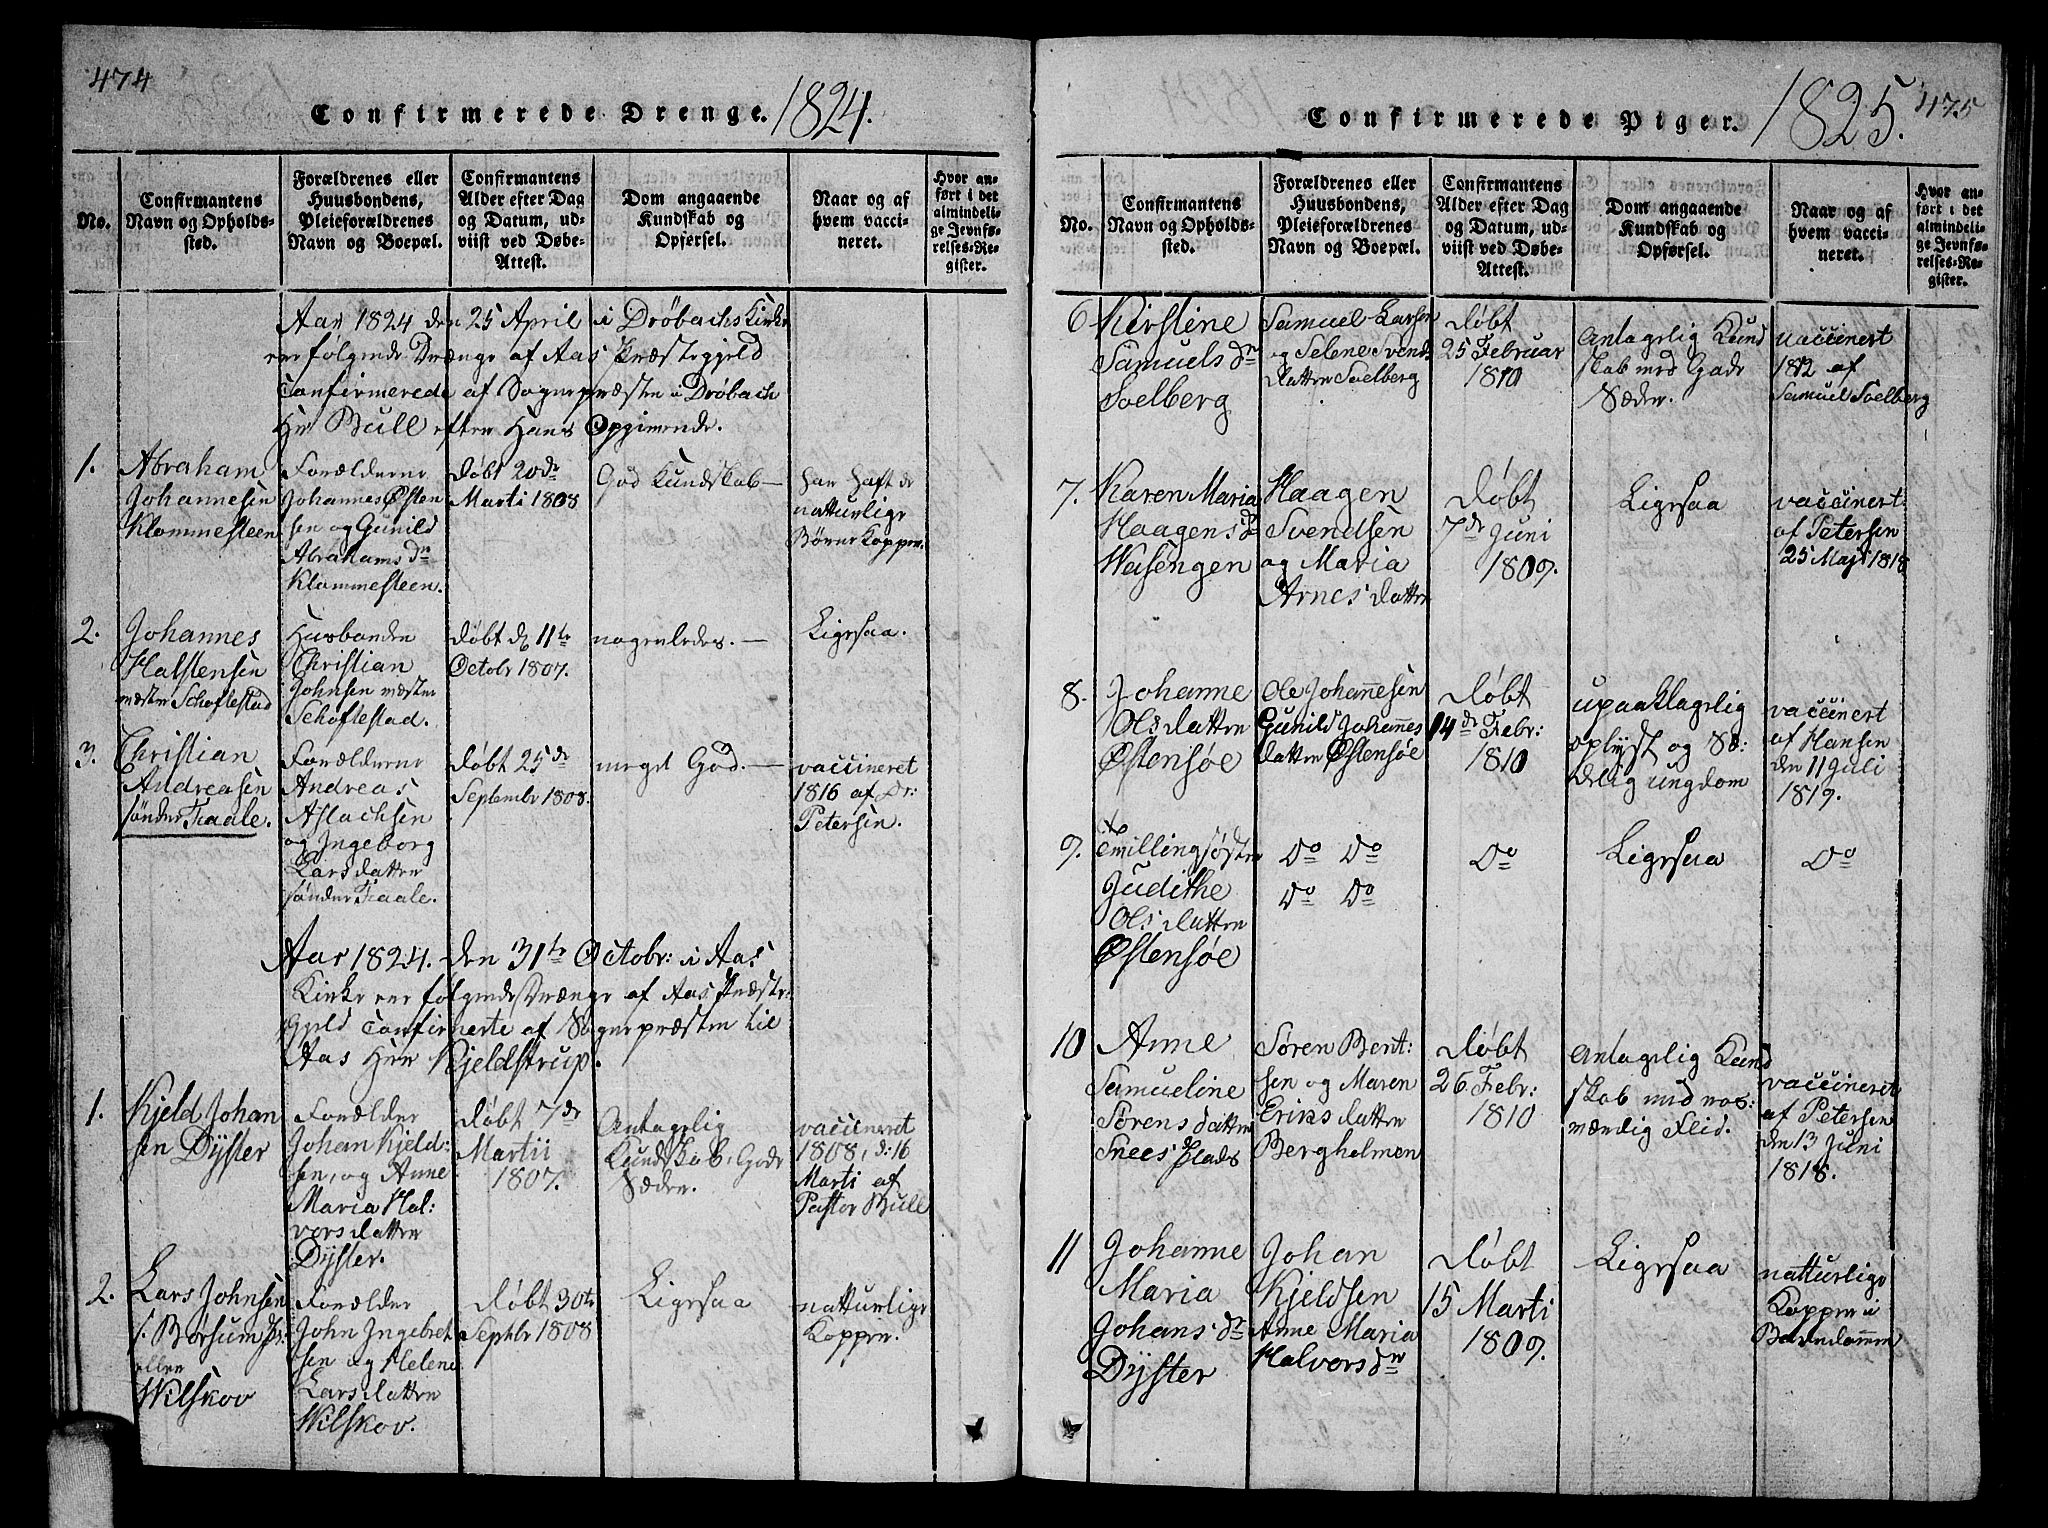 474
Confirmerede Drenge. 1824.
No.
Confirmantens
Navn og Opholds-
sted.
Forældrenes eller
Huusbondens,
Pleieforældrenes
Navn og Boepæl.
Confirmantens
Alder efter Dag
og Datum, ud-
viist ved Døbe-
Attest.
Dom angaaende
Kundskab og
Opførsel.
Naar og af
hvem vacci-
neret.
Hvor an-
ført i det
almindeli-
ge Jevnfø-
relses-Re-
gister.
Aar 1824 den 25 April i Drøbachs Kirke
ere følgende Drænge af Aas Præstegjeld
Confirmerede af Sognepræsten i Drøbach
Hr Bull efter Hans Opgivende.
1.
Abraham
Johannesen
Klommesteen
Forælderne
Johannes Østen
sen og Gunild
Abrahams dr
Klommesteen.
Døbt 20de
Marti 1808
God Kundskab —
har haft de
natturlige
Børne Kopper.
2.
Johannes
Halstensen
næstre Schoflestad
Husbonden
Christian
Johnsen næstre
Schoflestad.
Døbt d. 11te
Octobr 1807.
nogenledes. —
Ligesaa.
3.
Christian
Andreasen
sønder Kaale.
Forælderne
Andreas
Aslachsen
og Ingeborg
Larsdatter
sønder Kaale.
Døbt 25de
Septembr 1808.
meget God. —
vaccineret
1816 af Dr:
Petersen.
Aar 1824. den 31te Octobr: i Aas
Kirke ere følgende Drænge af Aas Præste-
Gjeld Confirmerte af Sognepræsten til
Aas Herr Kjeldstrup.
1.
Kjeld Johan
sen Dyster
Forælder
Johan Kjeld:
sen, og Anne
Maria Hal:
vorsdatter
Dyster.
Døbt 7de
Martii
1807.
Antagelig
Kundskab, Gode
Sæder.
vaccineret
1808, d: 16
Marti af
Pastor Bull
2.
Lars Johnsen
Børsum
eller
Wilskov
Forælder
John Ingebret
sen og Helene
Larsdatter
Wilskov.
Døbt 30te
Septbr 1808
Ligesaa
natturlige
Kopper.
Confirmerede Piger. 1825. 475
No.
Confirmantens
Navn og Opholds-
sted.
Forældrenes eller
Huusbondens,
Pleieforældrenes
Navn og Boepæl.
Confirmantens
Alder efter Dag
og Datum, ud-
viist ved Døbe-
Attest.
Dom angaaende
Kundskab og
Opførsel.
Naar og af
hvem vacci-
neret.
Hvor an-
ført i det
almindeli-
ge Jevnfø-
relses-Re-
gister.
6
Kirstine
Samuels dr
Soelberg
Samuel Larsen
og Selene Svends
datter Soelberg
Døbt
25 Februar
1810
Antagelig Kund
skab med Gode
Sæder.
vaccinert
1812 af
Samuel Soelberg
7.
Karen Maria
Haagens dr
Wasengen
Haagen
Svendsen
og Maria
Arnesdatter
Døbt
7de Juni
1809.
Ligesaa
vaccinert
af Petersen
25 Maji 1818
8.
Johanne
Olsdatter
Østensøe
Ole Johannesen
Gunild Johannes
datter Østensøe
Døbt
14de Febr:
1810
upaaklagelig
oplyst og Sæ:
delig ungdom
vaccinert
af Hansen
den 11 Juli
1819.
9.
Tvillingsøster
Judithe
Olsdatter
Østensøe
Do Do
Do Do
Do
Ligesaa
Do
10
Anne
Samueline
Sørensdatter
Snees Plads
Søren Bent:
sen og Maren
Eriksdatter
Bergholmen
Døbt
26. Febr:
1810
Antagelig Kund
skab med nos:
mændig Flid.
vaccineret
af Petersen
den 13 Juni
1818.
11
Johanne
Maria
Johans dr
Dyster
Johan
Kjeldsen
Anne Maria
Halvors dr
Døbt
15 Marti
1809.
Ligesaa
natturlige
Kopper i
Barndommen